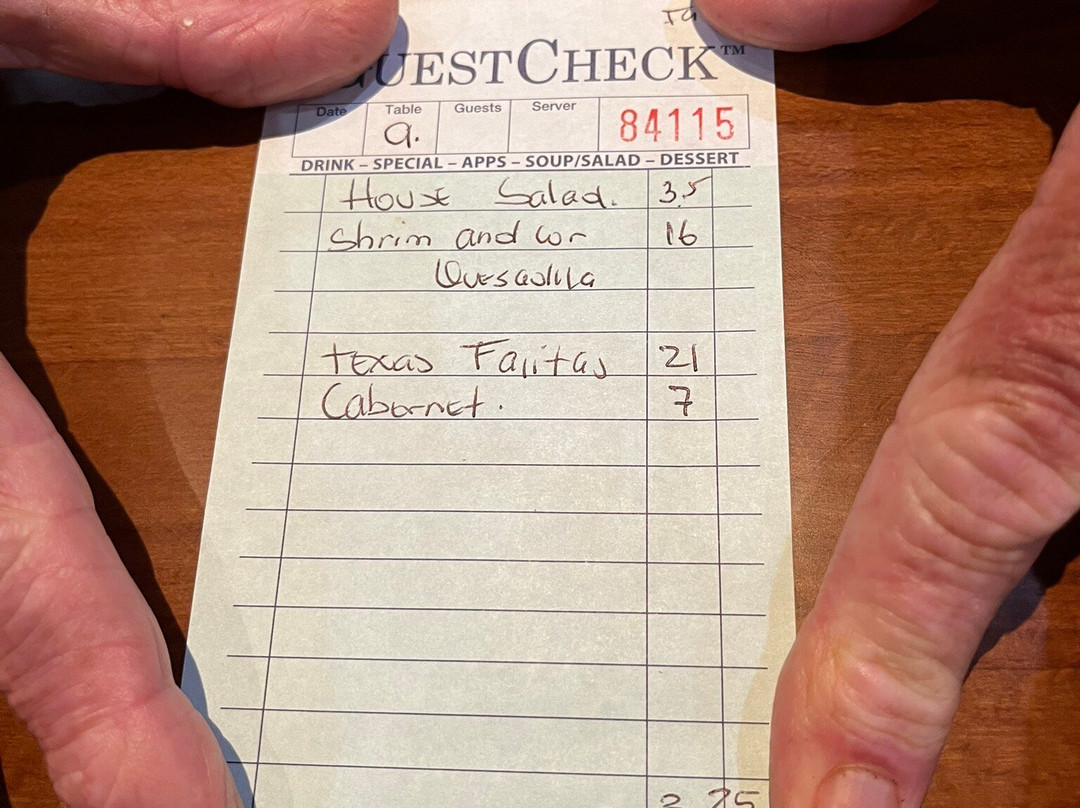 GUESTCHECK™
Date Table Guests Server 84115
9.
DRINK – SPECIAL – APPS – SOUP/SALAD – DESSERT
House Salad. 3.5
Shrim and cor 16
Quesadilla
Texas Fajitas 21
Cabernet. 7